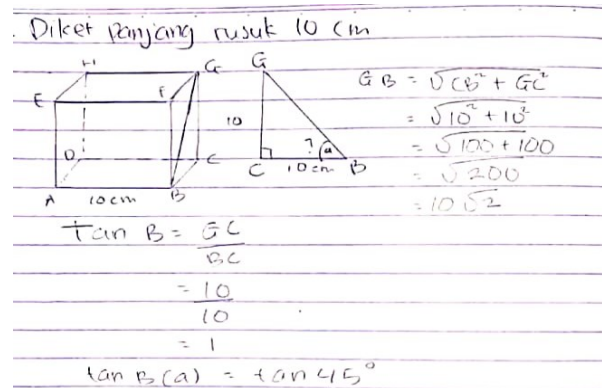 . Diket panjang rusuk 10 cm
H G
E F
D C
A 10 cm B
G
10
? a
C 10 cm B
GB = √CB² + GC²
= √10² + 10²
= √100 + 100
= √200
= 10√2
tan B = GC
BC
= 10
10
= 1
tan B (a) = tan 45°